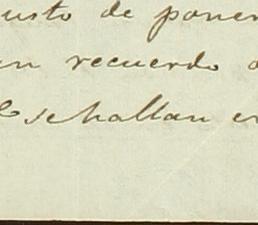 usto de poner
un recuerdo
se hallan en